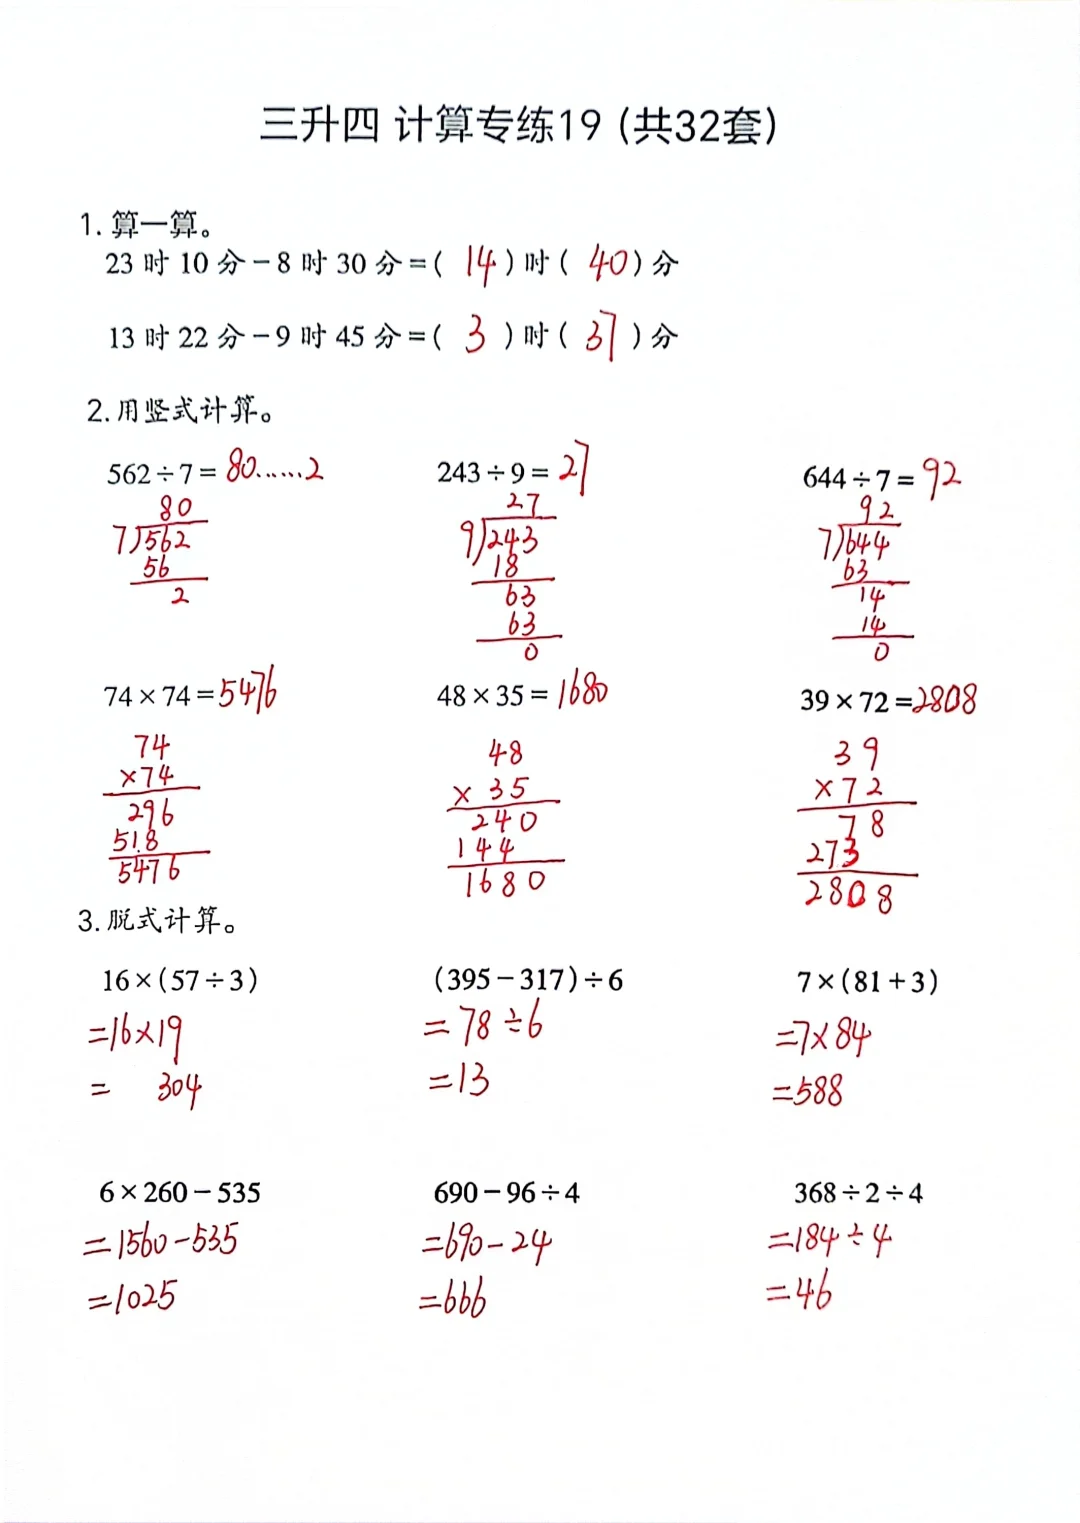 三升四 计算专练19 (共32套)
1. 算一算。
23 时 10 分－8 时 30 分=( 14 ) 时 ( 40 ) 分
13 时 22 分－9 时 45 分=( 3 ) 时 ( 37 ) 分
2. 用竖式计算。
562÷7= 80……2 243÷9= 27 644÷7= 92
80 27 92
7)562 9)243 7)644
56 18 63
2 63 14
63 14
0 0
74×74=5476 48×35=1680 39×72=2808
74 48 39
×74 ×35 ×72
296 240 78
518 144 273
5476 1680 2808
3. 脱式计算。
16×(57÷3) (395－317)÷6 7×(81+3)
=16×19 =78÷6 =7×84
= 304 =13 =588
6×260－535 690－96÷4 368÷2÷4
=1560-535 =690-24 =184÷4
=1025 =666 =46